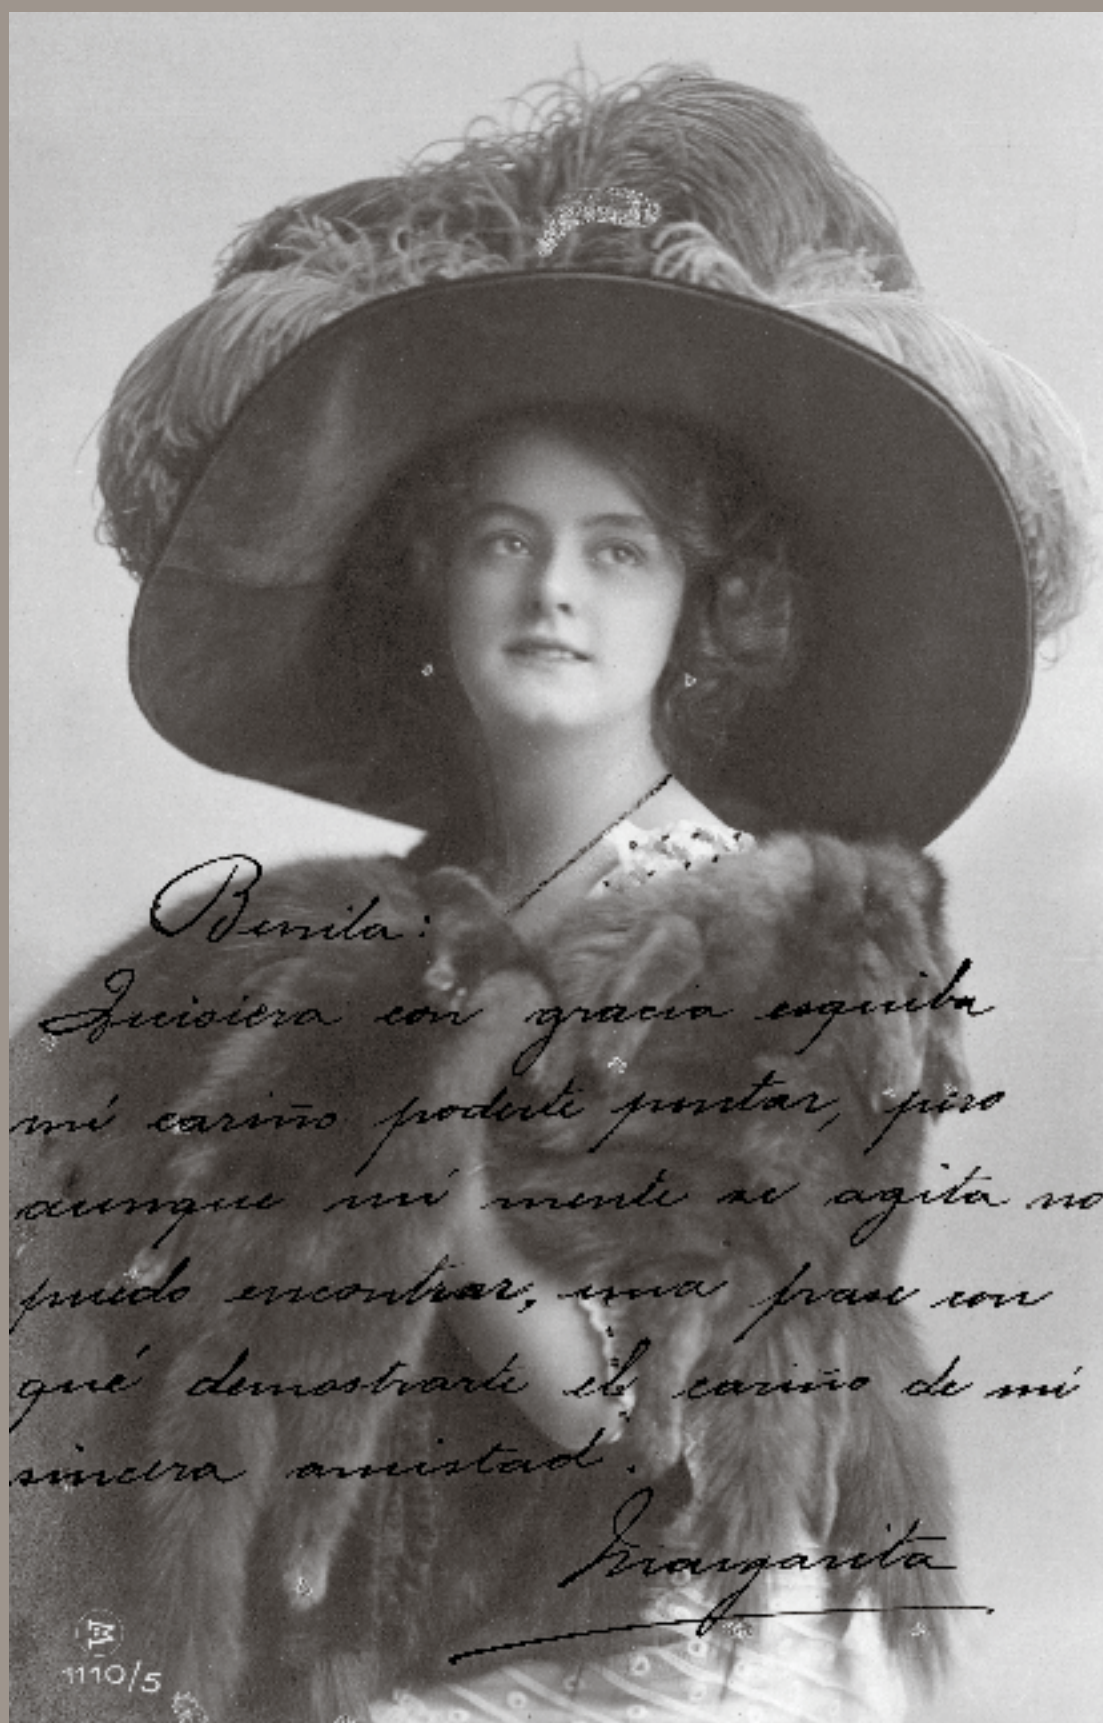 Benila:
Quisiera con gracia esquiba
mi cariño poderte pintar, pero
aunque mi mente se agita no
puedo encontrar, una frase con
qué demostrarte el cariño de mi
sincera amistad.
Margarita
1110/5